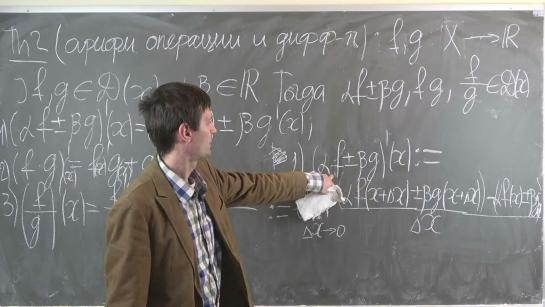 Th2 (арифм операции и дифф-л): f,g X → ℝ
] f,g ∈ D(x) β ∈ ℝ Тогда αf±βg, fg, f/g ∈ D(x)
1) (αf±βg)'(x)= ±)βg'(x),
2) (f·g)'=
3) (f/g)'(x)=
1) (αf±βg)'(x):=
:= f(x+Δx)±βg(x+Δx)-(αf(x)±βg
Δx→0 Δx